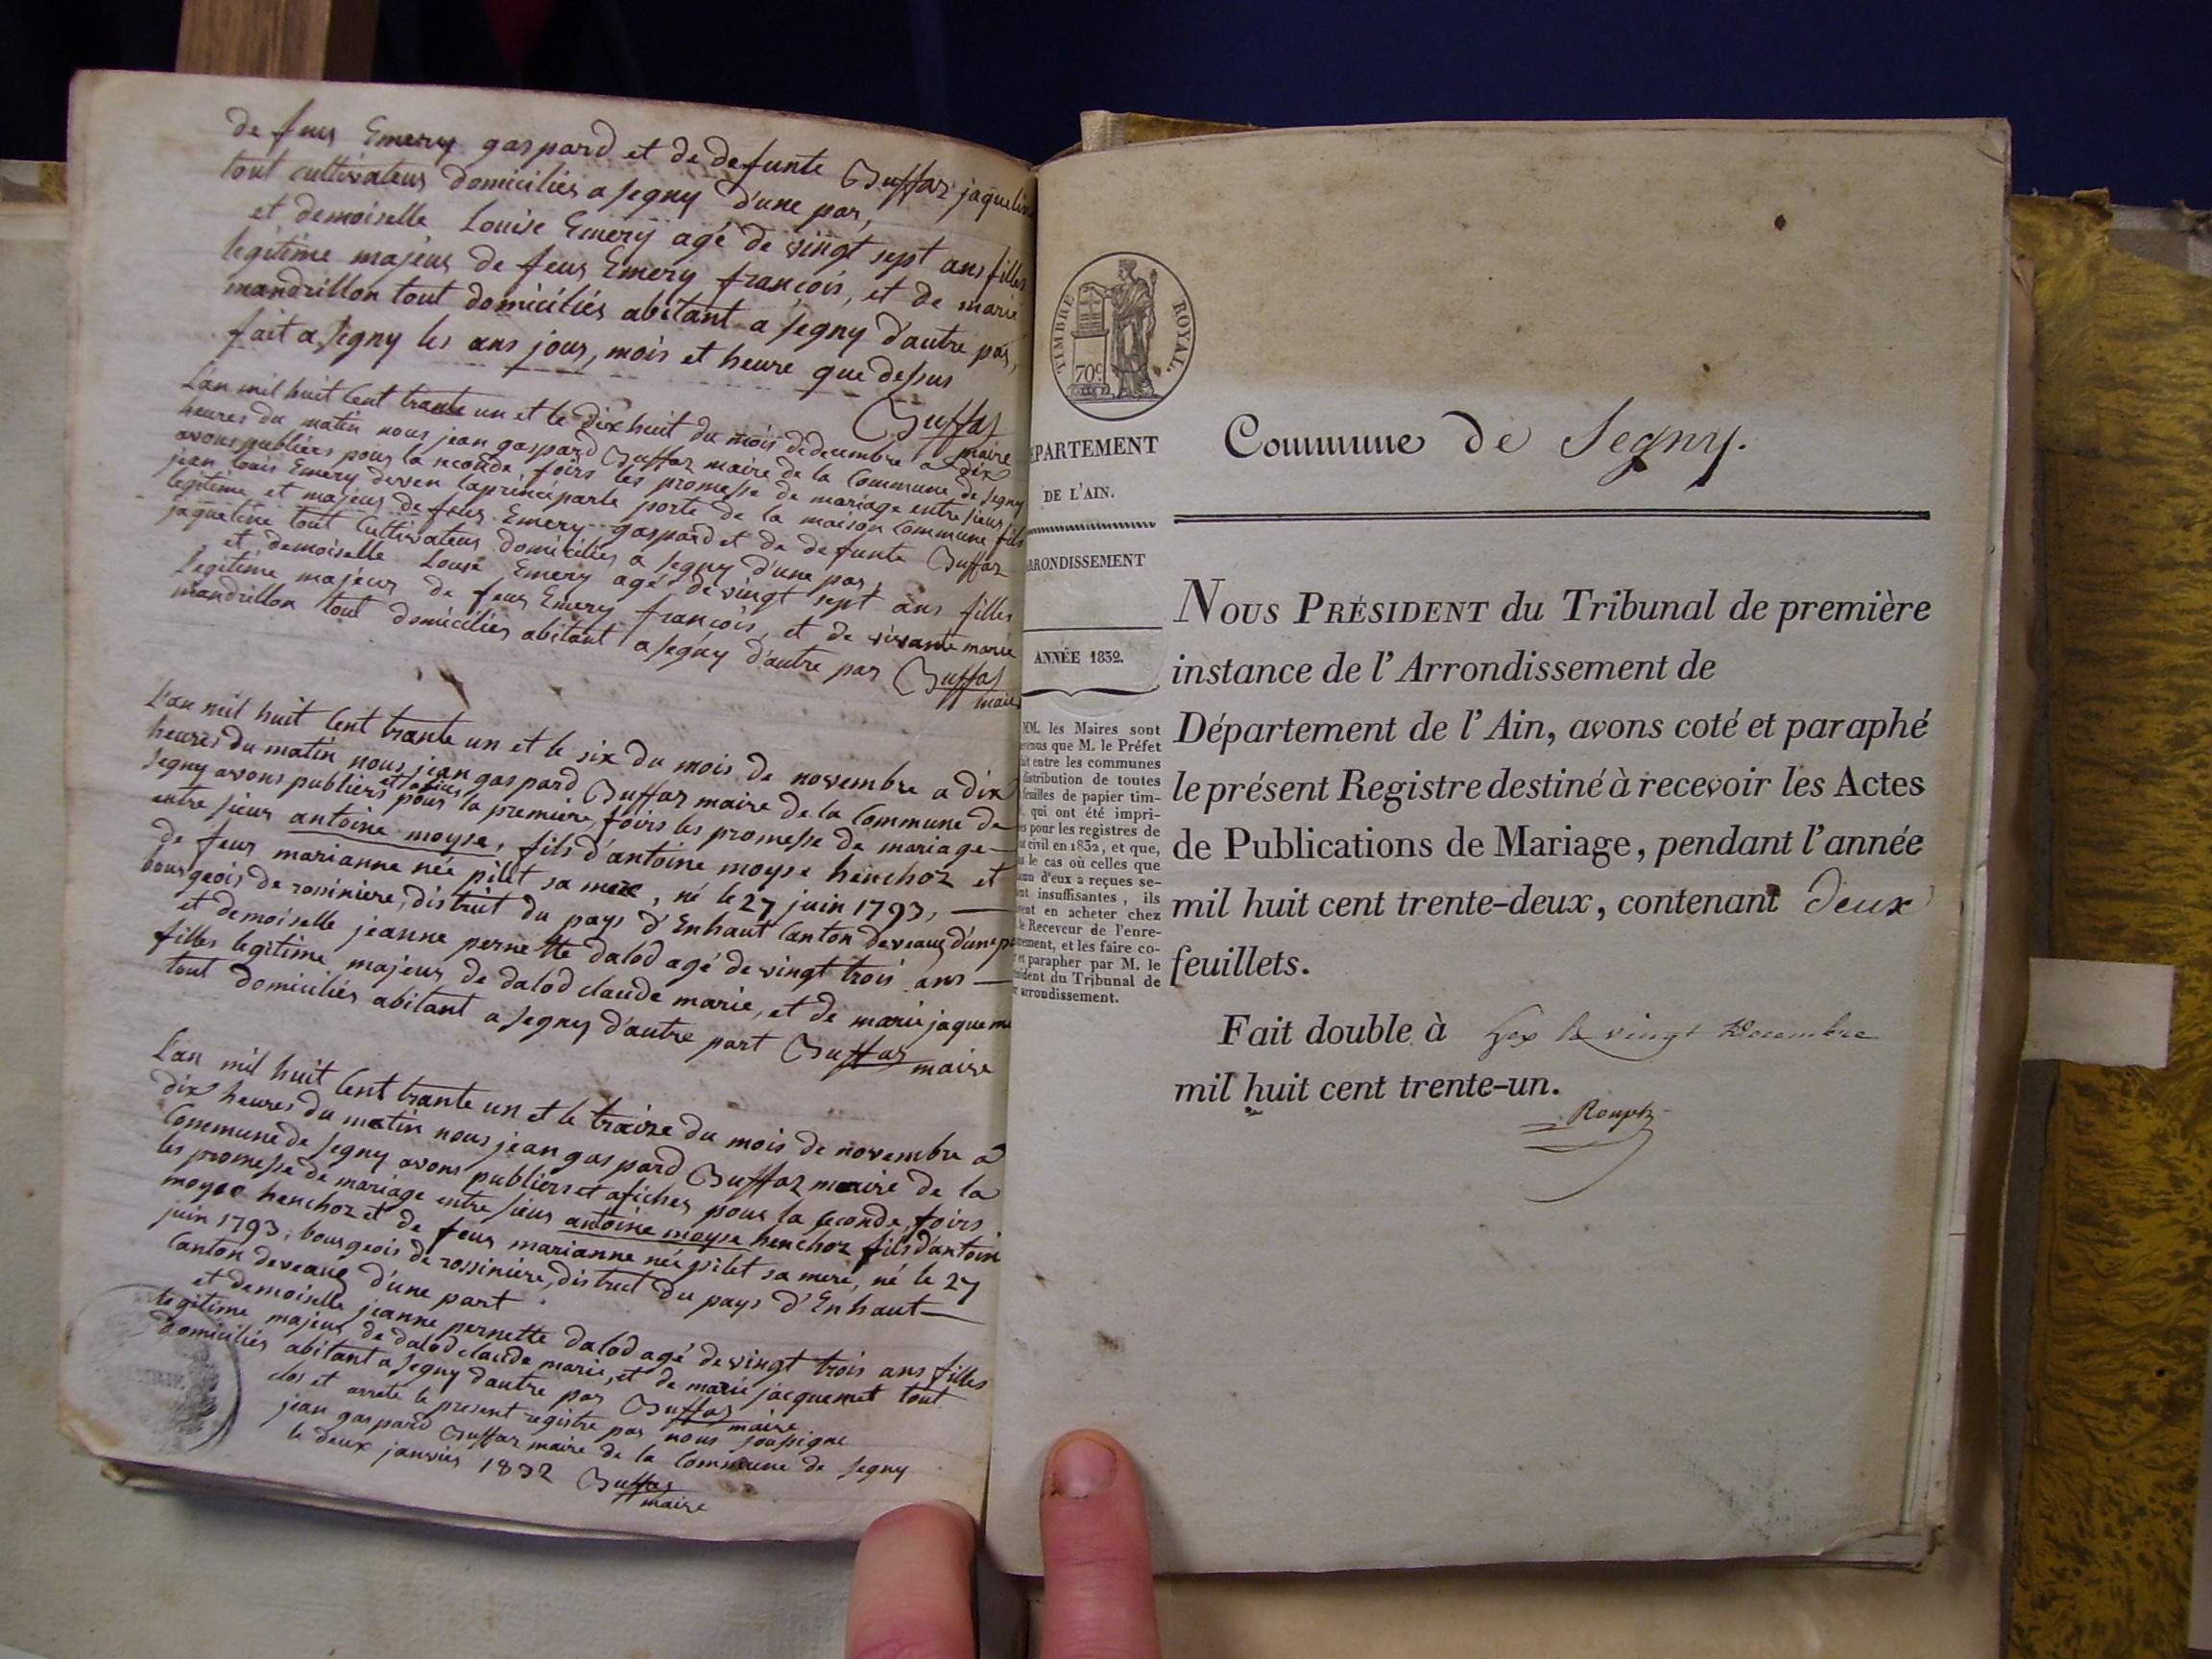 de feus Emery gaspard et de defunte Buffaz jaqueline
tout cultivateurs domiciliés a segny d'une par,
et demoiselle Louise Emery agé de vingt sept ans filles
legitime majeur de feus Emery françois, et de marie
mandrillon tout domiciliés abitant a segny d'autre par,
fait a segny les ans jour, mois et heure que dessus
Buffaz
maire
L'an mil huit Cent trante un et le dix huit du mois dedecembre a dix
heures du matin nous jean gaspard Buffaz maire de la Commune de segny
avons publiées pour la seconde foirs les promesse de mariage entre sieur
jean louis Emery deven laprincéparle porte de la maison Commune fils
legitime et majeur de feus Emery gaspard et de defunte Buffaz
jaqueline tout Cultivateur domiciliés a segny d'une par,
et demoiselle Louise Emery agé de vingt sept ans filles
legitime majeur de feus Emery françois, et de vivante marie
mandrillon tout domiciliés abitant a segny d'autre par Buffaz
maire
L'an mil huit Cent trante un et le six du mois de novembre a dix
heures du matin nous jean gaspard Buffaz maire de la Commune de
segny avons publiers et afiches pour la premiere foirs les promesse de mariage
entre sieur antoine moyse, fils d'antoine moyse henchoz et
de feur marianne née pilet sa mere, né le 27 juin 1793,
bourgeois de rossiniere, distruit du pays d'Enhaut Canton deveaux d'une par
et demoiselle jeanne pernette dalod agé de vingt trois ans
filles legitime majeur de dalod claude marie, et de marie jaqueme
tout domiciliés abitant a segny d'autre part Buffaz maire
L'an mil huit Cent trante un et le traize du mois de novembre a
dix heures du matin nous jean gaspard Buffaz maire de la
Commune de segny avons publiers et afiches pour la seconde foirs
les promesse de mariage entre sieur antoine moyse henchoz fils d'antoin
moyse henchoz et de feur marianne née pilet sa mere, né le 27
juin 1793, bourgeois de rossiniere, distruct du pays d'Enhaut
Canton deveaux d'une part
et demoiselle jeanne pernette dalod agé de vingt trois ans filles
legitime majeur de dalod claude marie, et de marie jacquemet tout
domiciliés abitant a segny dautre par Buffaz
maire
clos et arrete le present registre par nous soussigne
jean gaspard Buffaz maire de la Commune de segny
le deux janvier 1832 Buffaz
maire
TIMBRE ROYAL.
70c
Commune de Segny.
DÉPARTEMENT
DE L'AIN.
ARRONDISSEMENT
ANNÉE 1832.
MM. les Maires sont
que M. le Préfet
entre les communes
distribution de toutes
feuilles de papier tim-
qui ont été impri-
pour les registres de
civil en 1832, et que,
le cas où celles que
d'eux a reçues se-
insuffisantes, ils
en acheter chez
le Receveur de l'enre-
et les faire co-
et parapher par M. le
Président du Tribunal de
arrondissement.
NOUS PRÉSIDENT du Tribunal de première
instance de l'Arrondissement de
Département de l'Ain, avons coté et paraphé
le présent Registre destiné à recevoir les Actes
de Publications de Mariage, pendant l'année
mil huit cent trente-deux, contenant deux
feuillets.
Fait double à Gex le vingt Decembre
mil huit cent trente-un.